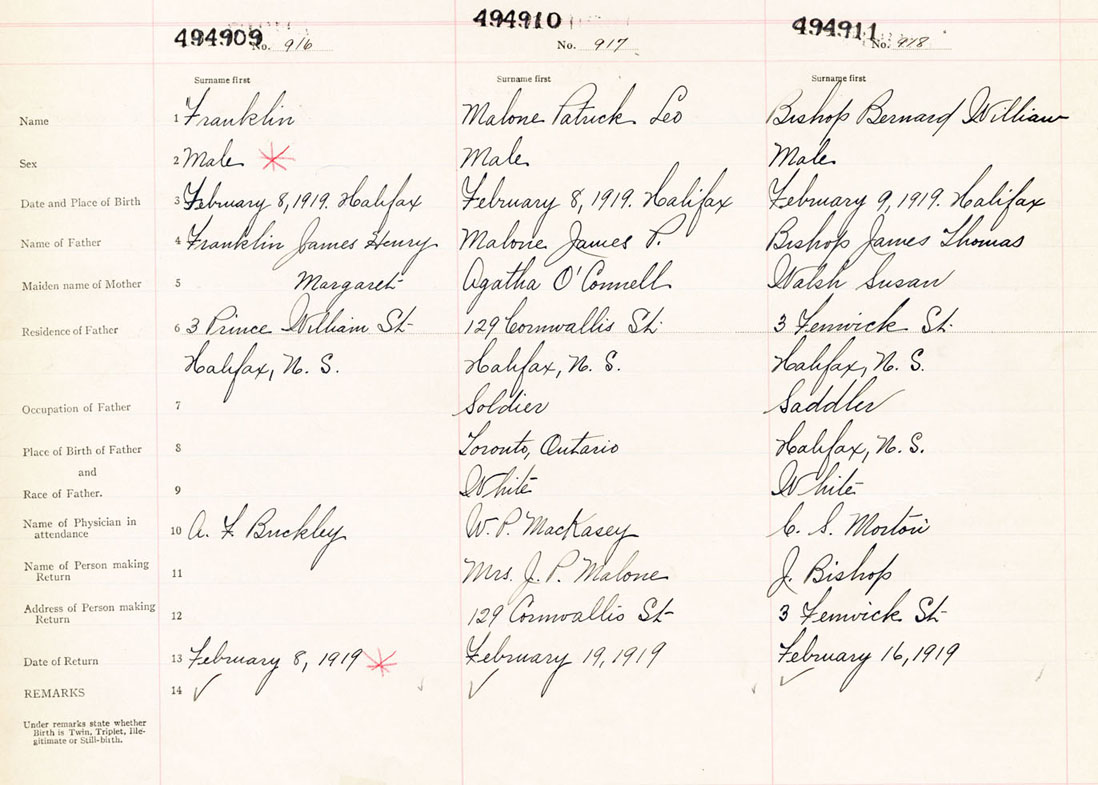 494909 494910 494911
No. 916 No. 917 No. 918
Surname first Surname first Surname first
Name 1 Franklin Malone Patrick Leo Bishop Bernard William
Sex 2 Male Male Male
Date and Place of Birth 3 February 8, 1919. Halifax February 8, 1919. Halifax February 9, 1919. Halifax
Name of Father 4 Franklin James Henry Malone James P. Bishop James Thomas
Maiden name of Mother 5 Margaret Agatha O'Connell Walsh Susan
Residence of Father 6 3 Prince William St. 129 Cornwallis St. 3 Fenwick St.
Halifax, N. S. Halifax, N. S. Halifax, N. S.
Occupation of Father 7 Soldier Saddler
Place of Birth of Father 8 Toronto, Ontario Halifax, N. S.
and
Race of Father. 9 White White
Name of Physician in
attendance 10 A. F. Buckley W. P. MacKasey C. S. Morton
Name of Person making
Return 11 Mrs. J. P. Malone J. Bishop
Address of Person making
Return 12 129 Cornwallis St. 3 Fenwick St.
Date of Return 13 February 8, 1919 February 19, 1919 February 16, 1919
REMARKS 14
Under remarks state whether
Birth is Twin, Triplet, Ille-
gitimate or Still-birth.